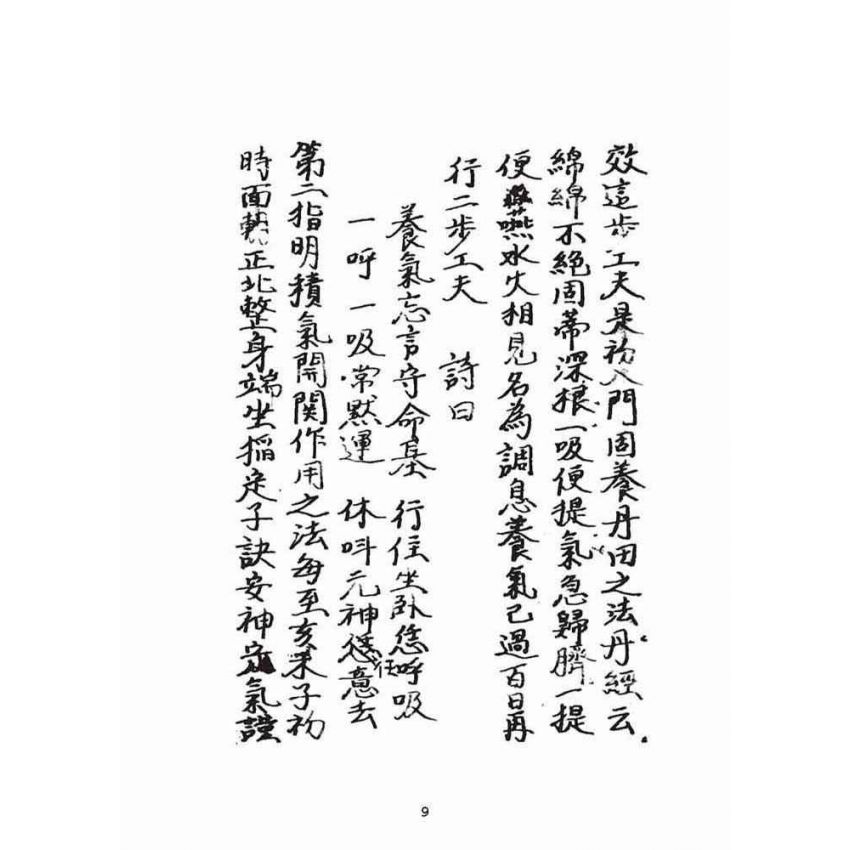 效這步工夫是初入門固養丹田之法丹經云
綿綿不絕固蒂深根一吸便提氣氣歸臍一提
便嚥水火相見名為調息養氣已過百日再
行二步工夫 詩曰
養氣忘言守命基 行住坐卧恁呼吸
一呼一吸常默運 休叫元神任意去
第二指明積氣開関作用之法每至亥末子初
時面朝正北整身端坐掐定子訣安神定氣
9